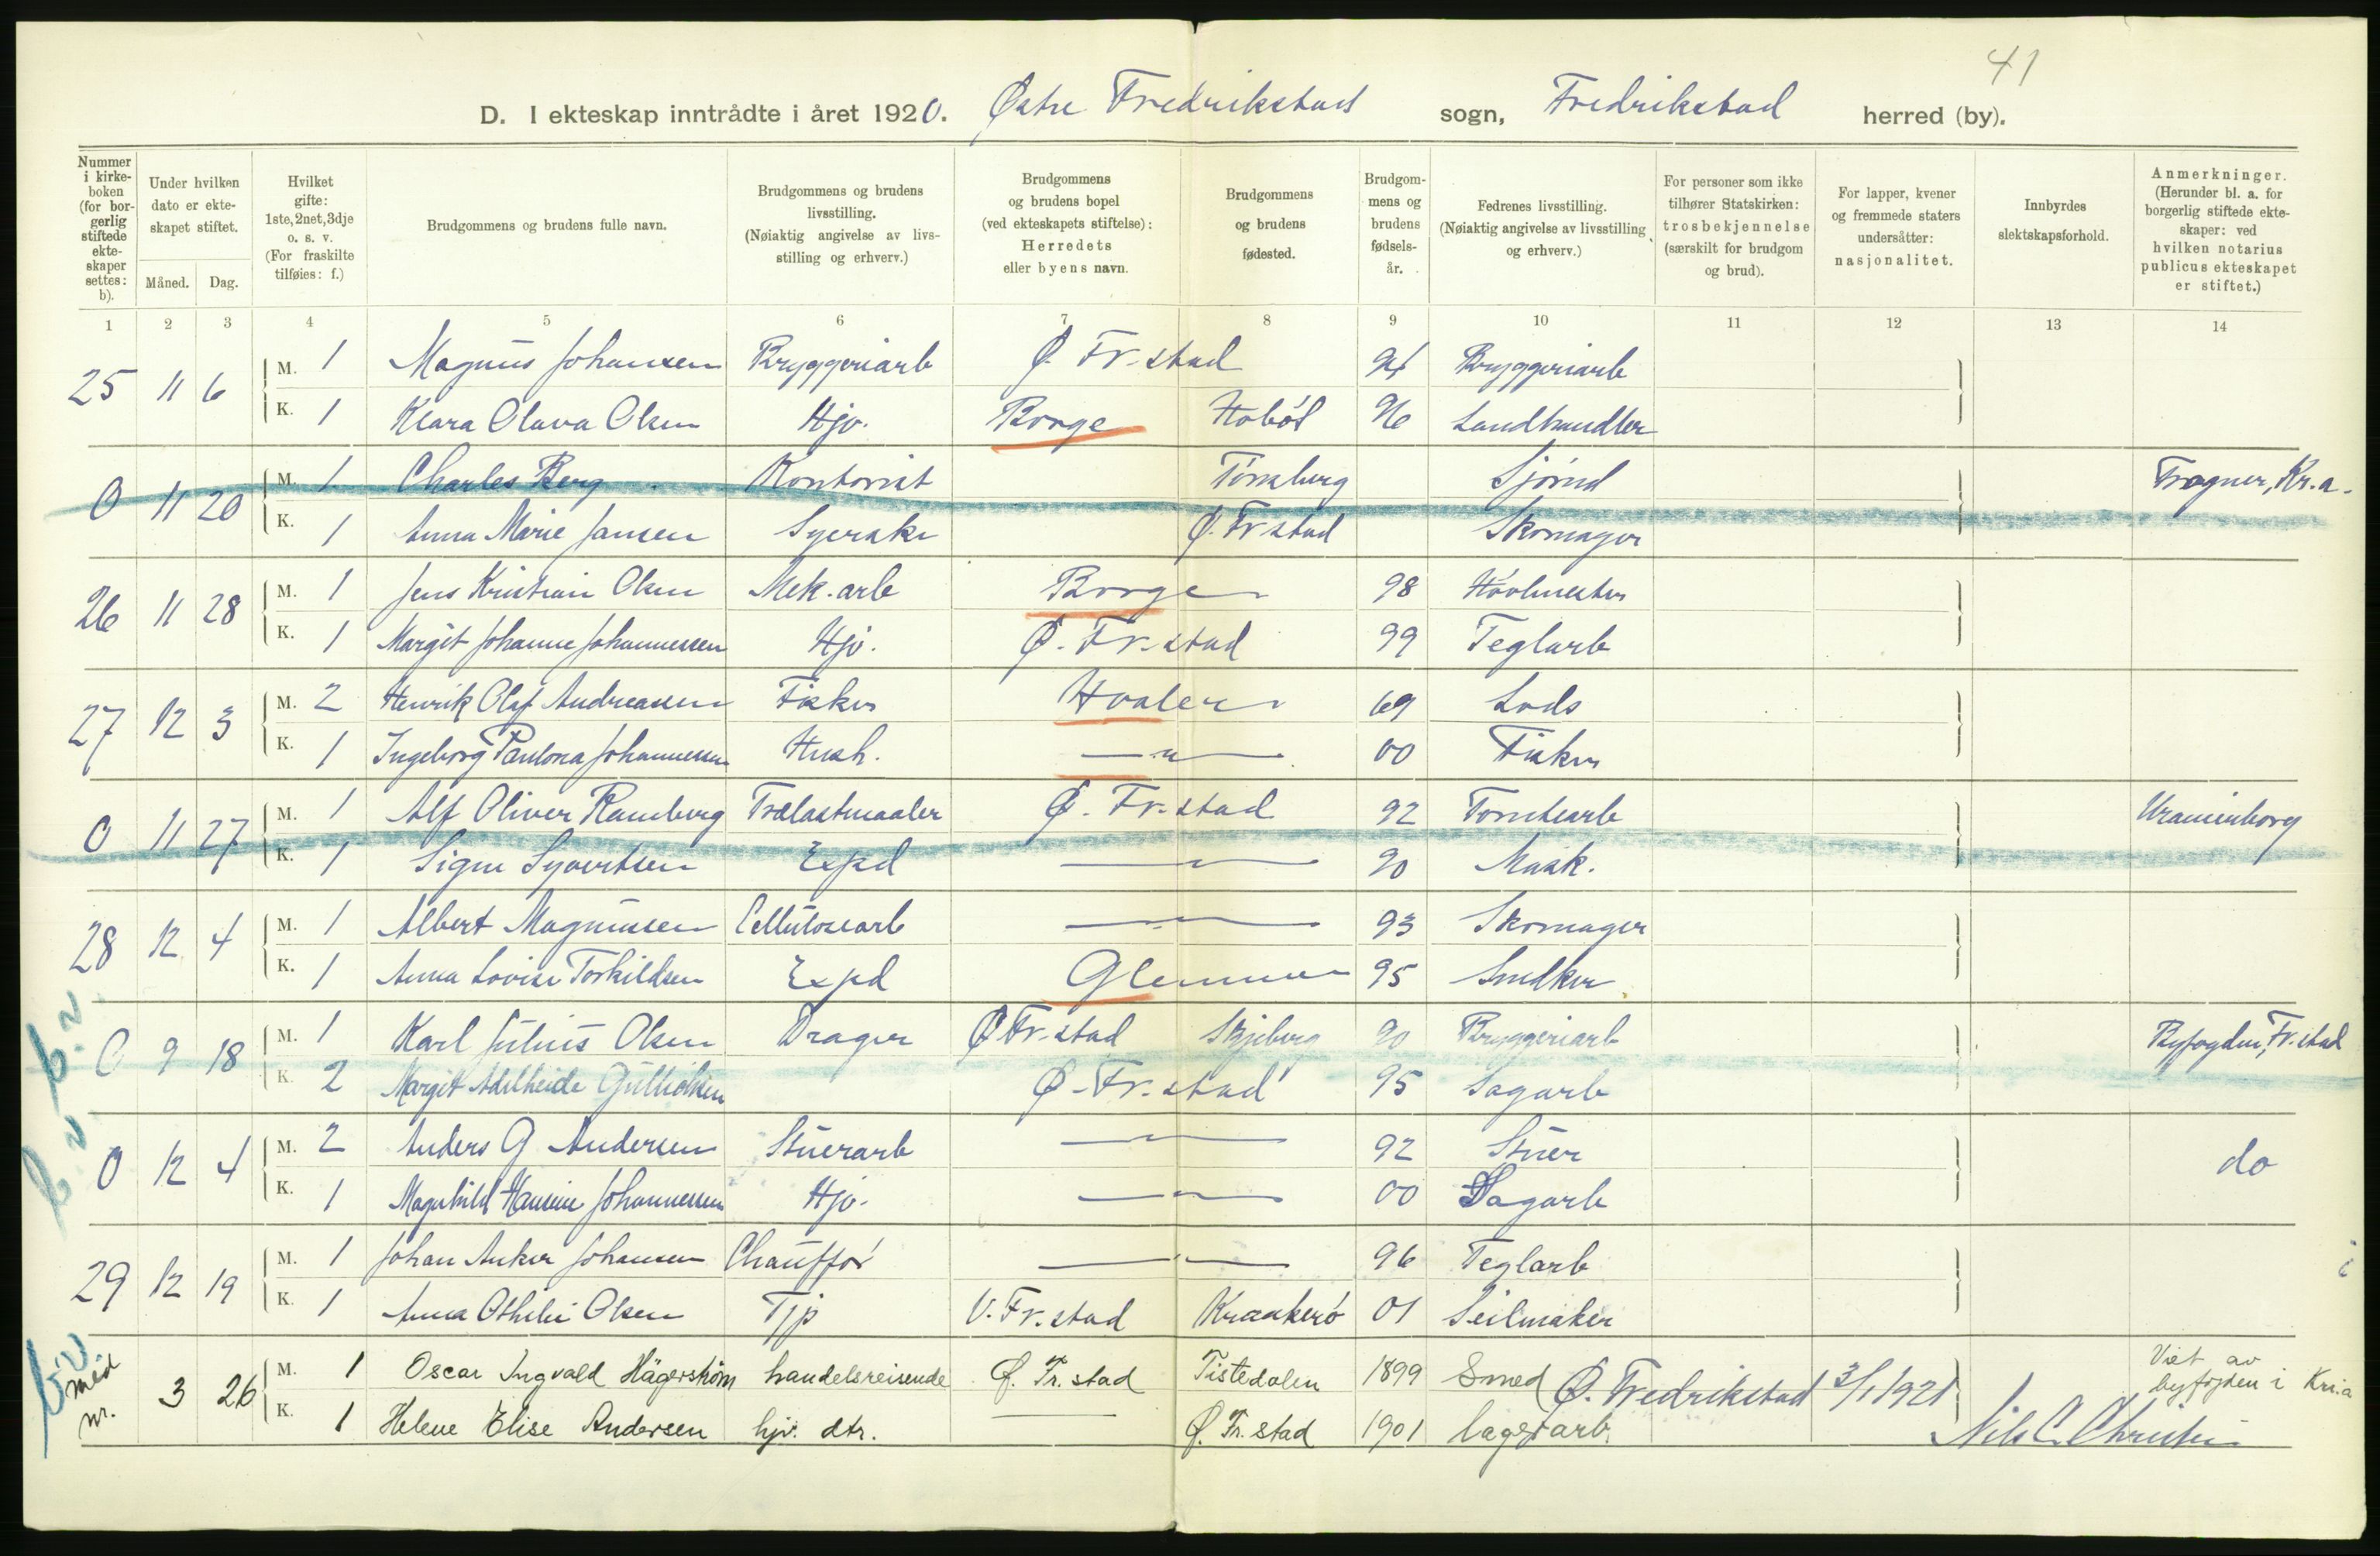 41
D. I ekteskap inntrådte i året 1920. Østre Fredrikstad sogn, Fredrikstad herred (by).
Nummer i kirkeboken (for borgerlig stiftede ekteskaper settes: b). Under hvilken dato er ekteskapet stiftet. Måned. Dag. Hvilket gifte: 1ste, 2net, 3dje o. s. v. (For fraskilte tilføies: f.) Brudgommens og brudens fulle navn. Brudgommens og brudens livsstilling. (Nøiaktig angivelse av livsstilling og erhverv.) Brudgommens og brudens bopel (ved ekteskapets stiftelse): Herredets eller byens navn. Brudgommens og brudens fødested. Brudgommens og brudens fødselsår. Fedrenes livsstilling. (Nøiaktig angivelse av livsstilling og erhverv.) For personer som ikke tilhører Statskirken: trosbekjennelse (særskilt for brudgom og brud). For lapper, kvener og fremmede staters undersåtter: nasjonalitet. Innbyrdes slektskapsforhold. Anmerkninger. (Herunder bl. a. for borgerlig stiftede ekteskaper: ved hvilken notarius publicus ekteskapet er stiftet.)
1 2 3 4 5 6 7 8 9 10 11 12 13 14
25 11 6 M. 1 Magnus Johansen Bryggeriarb Ø. Fr.stad 94 Bryggeriarb
K. 1 Klara Olava Olsen Hjv. Borge Hobøl 96 Landhandler
0 11 20 M. 1 Charles Berg Kontorist Tønsberg Sjømd Frogner, Kr.a.
K. 1 Anna Marie Jansen Syerske Ø. Fr stad Skomager
26 11 28 M. 1 Jens Kristian Olsen Mek. arb Borge 98 Hovlmester
K. 1 Margit Johanne Johannessen Hjv. Ø. Fr.stad 99 Teglarb
27 12 3 M. 2 Henrik Olaf Andreassen Fisker Hvaler 69 Lods
K. 1 Ingeborg Paulona Johannessen Hush. — " — 00 Fisker
0 11 27 M. 1 Alf Oliver Ramberg Trælastmaaler Ø. Fr.stad 92 Tomtearb Uranienborg
K. 1 Signe Syvertsen Expd — " — 90 Mask.
28 12 4 M. 1 Albert Magnussen Cellulosearb — " — 93 Skomager
K. 1 Anna Lovise Torkildsen Expd Glemmen 95 Snedker
0 9 18 M. 1 Karl Julius Olsen Drager Ø Fr.stad Skjeberg 90 Bryggeriarb Byfogden, Fr.stad
K. 2 Margit Adelheide Gulliksen Ø. Fr.stad 95 Sagarb
0 12 4 M. 2 Anders G Andersen Stuerarb — " — 92 Stuer do
K. 1 Magnhild Hansine Johannessen Hjv. — " — 00 Sagarb
29 12 19 M. 1 Johan Anker Johansen Chauffør — " — 96 Teglarb
K. 1 Anna Othilie Olsen Tjp V. Fr.stad Kraakerø 01 Seilmaker
med nr. 3 26 M. 1 Oscar Ingvald Hägerstrøm handelsreisende Ø. Fr. stad Tistedalen 1899 Smed Viet av byfogden i Kr.ia
K. 1 Helene Elise Andersen hjv. dtr. — Ø. Fr. stad 1901 lagerarb.
Ø. Fredrikstad 3/1 1921
Nils C. Christie